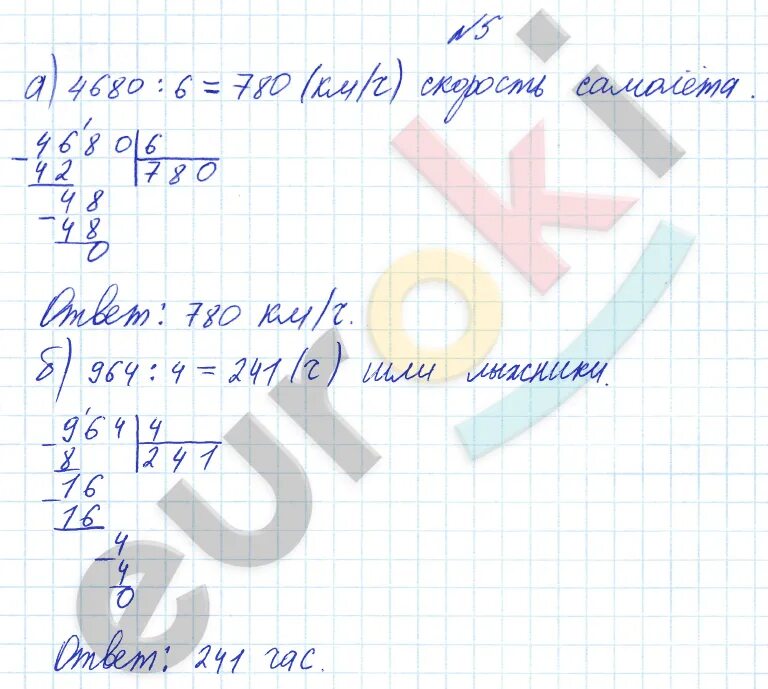 №5
а) 4680 : 6 = 780 (км/ч) скорость самолёта.
4680 | 6
42 | 780
48
48
0
Ответ: 780 км/ч.
б) 964 : 4 = 241 (ч) шли лыжники.
964 | 4
8 | 241
16
16
4
4
0
Ответ: 241 час.
euroki